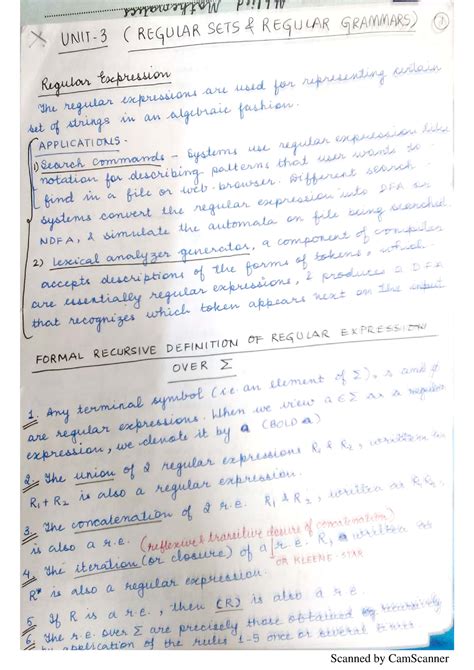 UNIT-3 ( REGULAR SETS & REGULAR GRAMMARS)
Regular Expression
The regular expressions are used for representing certain
set of strings in an algebraic fashion.
APPLICATIONS -
1) Search Commands - Systems use regular expression like
notation for describing patterns that user wants to
find in a file or web browser. Different search
systems convert the regular expression into DFA or
NDFA, & simulate the automata on file being searched.
2) Lexical analyzer generator, a component of compiler
accepts descriptions of the forms of tokens, which
are essentially regular expressions, & produces a DFA
that recognizes which token appears next on the input
FORMAL RECURSIVE DEFINITION OF REGULAR EXPRESSION
OVER Σ
1. Any terminal symbol (i.e an element of Σ), and
are regular expressions. When we view a ∈ Σ as a regular
expression, we denote it by a (BOLD a)
2. The union of 2 regular expressions R1 & R2, written as
R1 + R2 is also a regular expression.
3. The concatenation of 2 r.e. R1 & R2, written as R1R2
is also a r.e. (reflexive & transitive closure of concatenation)
4. The iteration (or closure) of a r.e. R, written as
OR KLEENE STAR
R* is also a regular expression.
5. If R is a r.e., then (R) is also a r.e.
6. The r.e. over Σ are precisely those obtained by
by application of the rules 1-5 once or several times
Scanned by CamScanner